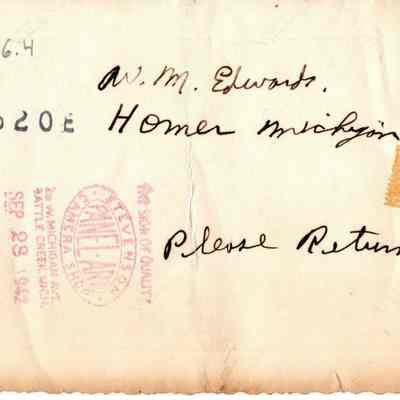 6.4
W. M. Edwards.
520E
Homer Michigan
Please Return
THE SIGN OF QUALITY
STEVENSON
CAMERA SHOP
W. MICHIGAN AVE.
BATTLE CREEK, MICH.
SEP 28 1942